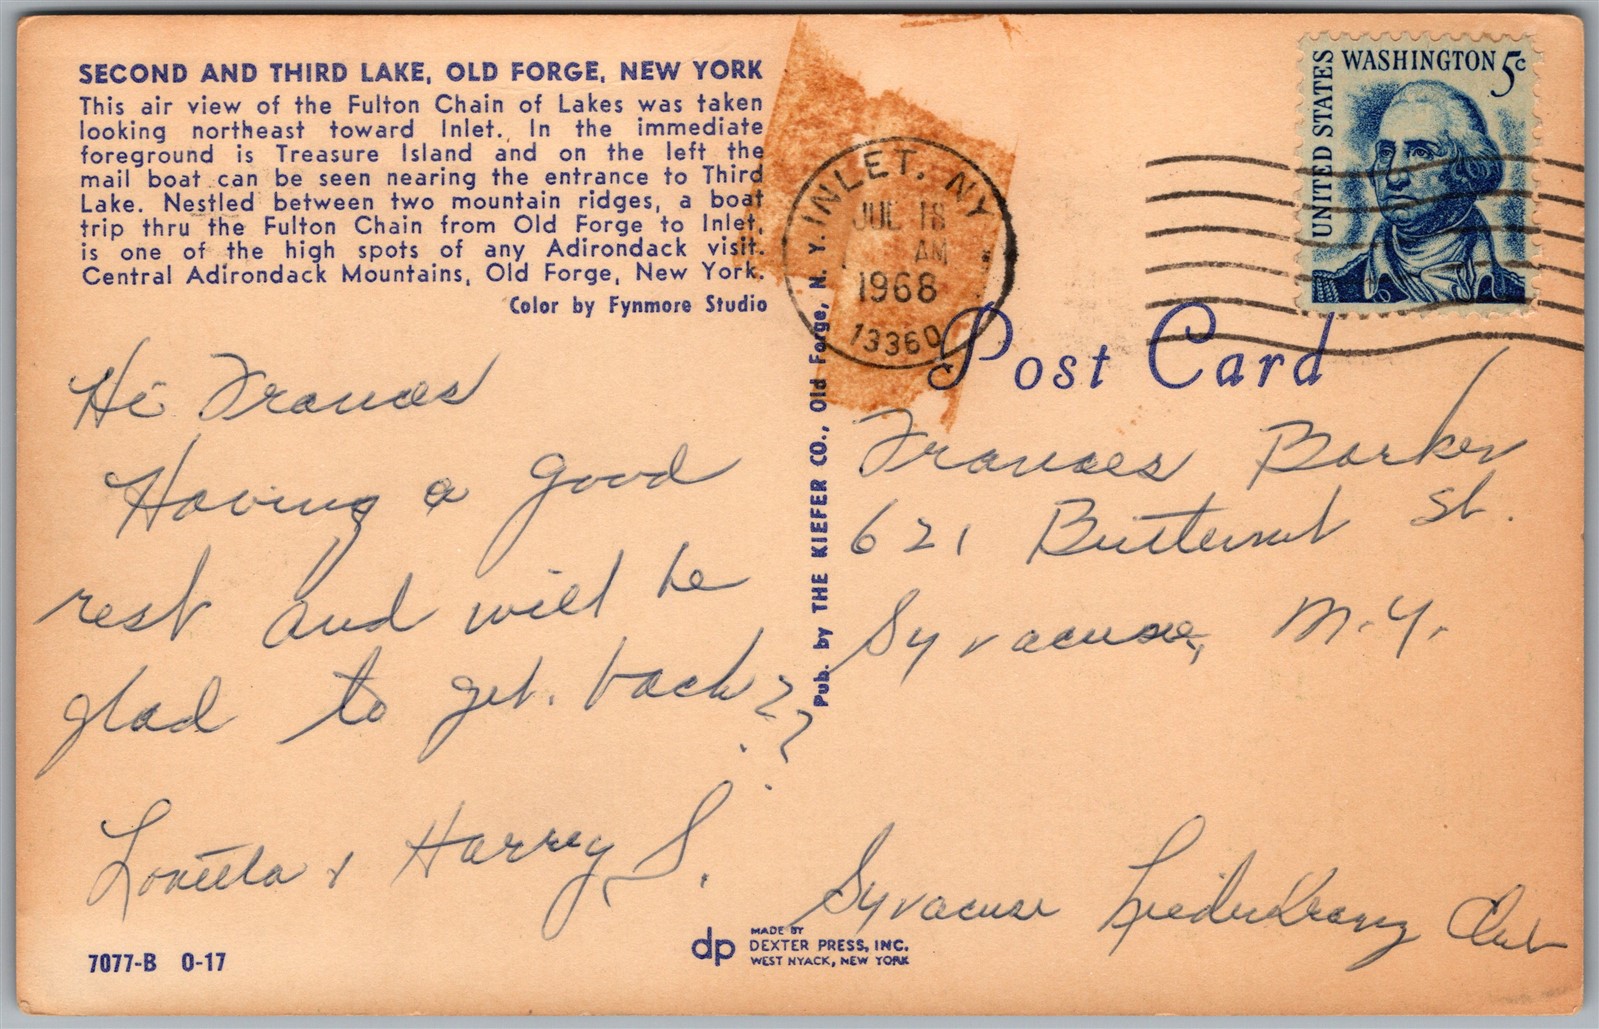 SECOND AND THIRD LAKE, OLD FORGE, NEW YORK
This air view of the Fulton Chain of Lakes was taken
looking northeast toward Inlet. In the immediate
foreground is Treasure Island and on the left the
mail boat can be seen nearing the entrance to Third
Lake. Nestled between two mountain ridges, a boat
trip thru the Fulton Chain from Old Forge to Inlet,
is one of the high spots of any Adirondack visit.
Central Adirondack Mountains, Old Forge, New York.
Color by Fynmore Studio
Hi Frances
Having a good
rest and will be
glad to get. back??
& Harry S.
7077-B O-17
Pub. by THE KIEFER CO., Old Forge, N. Y.
dp
MADE BY
DEXTER PRESS, INC.
WEST NYACK, NEW YORK
INLET. NY
JUL 18
AM
1968
13360
UNITED STATES
WASHINGTON 5c
Post Card
Frances Barker
621 Butternut St.
Syracuse, N.Y.
Syracuse Liederkranz Club